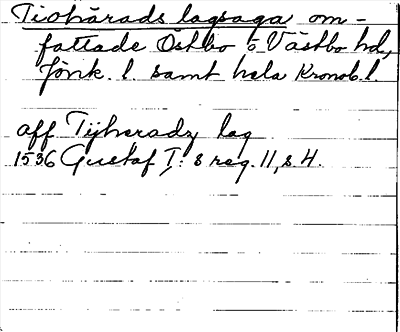 Tiohärads lagsaga om-
fattade Östbo o Västbo hd,
Jönk. l. samt hela Kronob. l.
aff Tijheradz lag
1536 Gustaf I:s reg. 11, s. 4.